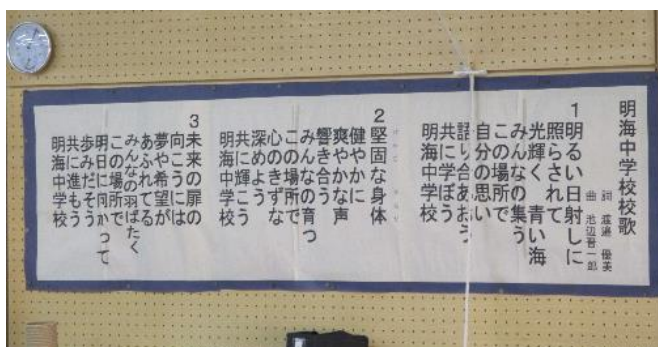 明海中学校校歌
詞 渡邉 優美
曲 池辺晋一郎
1 明るい日射しに
照らされて
光輝く 青い海
みんなの集う
この場所で
自分の思い
語り合あおう
共に学ぼう
明海中学校
2 堅固な身体
健やかに
爽やかな声
響き合う
みんなの育つ
この場所で
心のきずな
深めよう
共に輝こう
明海中学校
3 未来の扉の
向こうには
夢や希望が
あふれてる
みんなの羽ばたく
この場所で
明日に向かって
歩みだそう
共に進もう
明海中学校